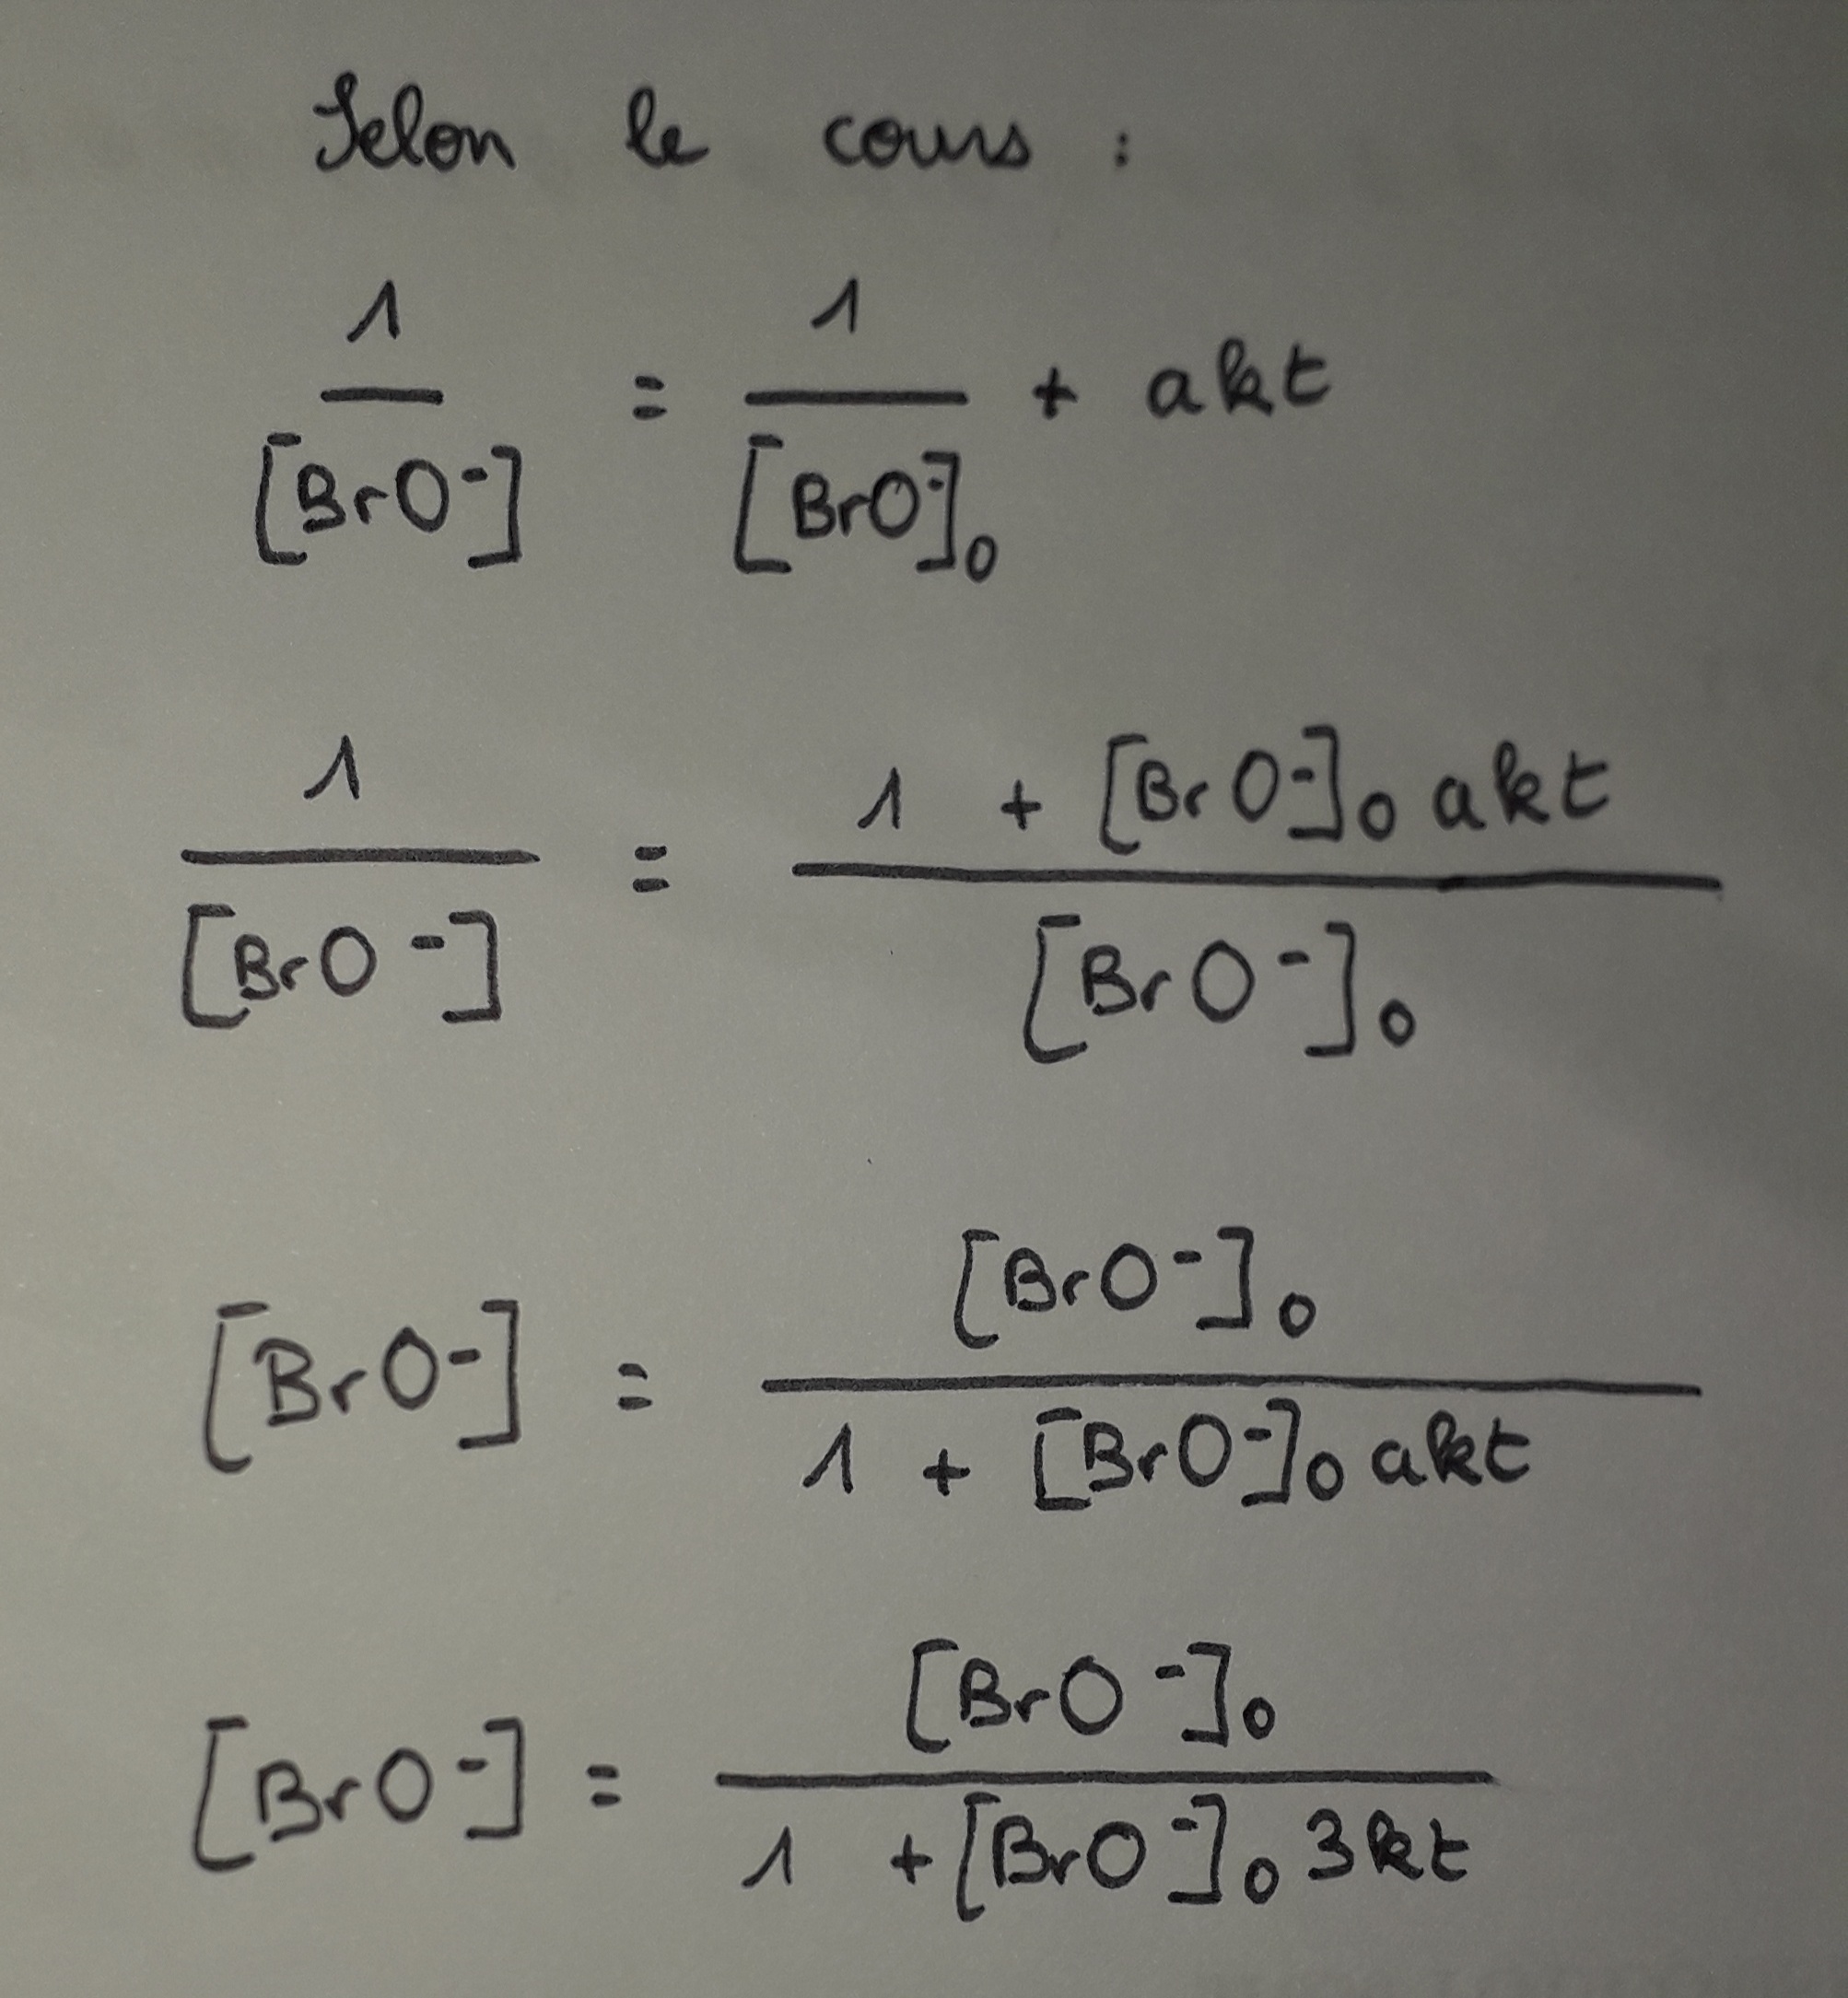 Selon le cours :
1/[BrO-] = 1/[BrO-]0 + akt
1/[BrO-] = (1 + [BrO-]0 akt)/[BrO-]0
[BrO-] = [BrO-]0/(1 + [BrO-]0 akt)
[BrO-] = [BrO-]0/(1 + [BrO-]0 3kt)